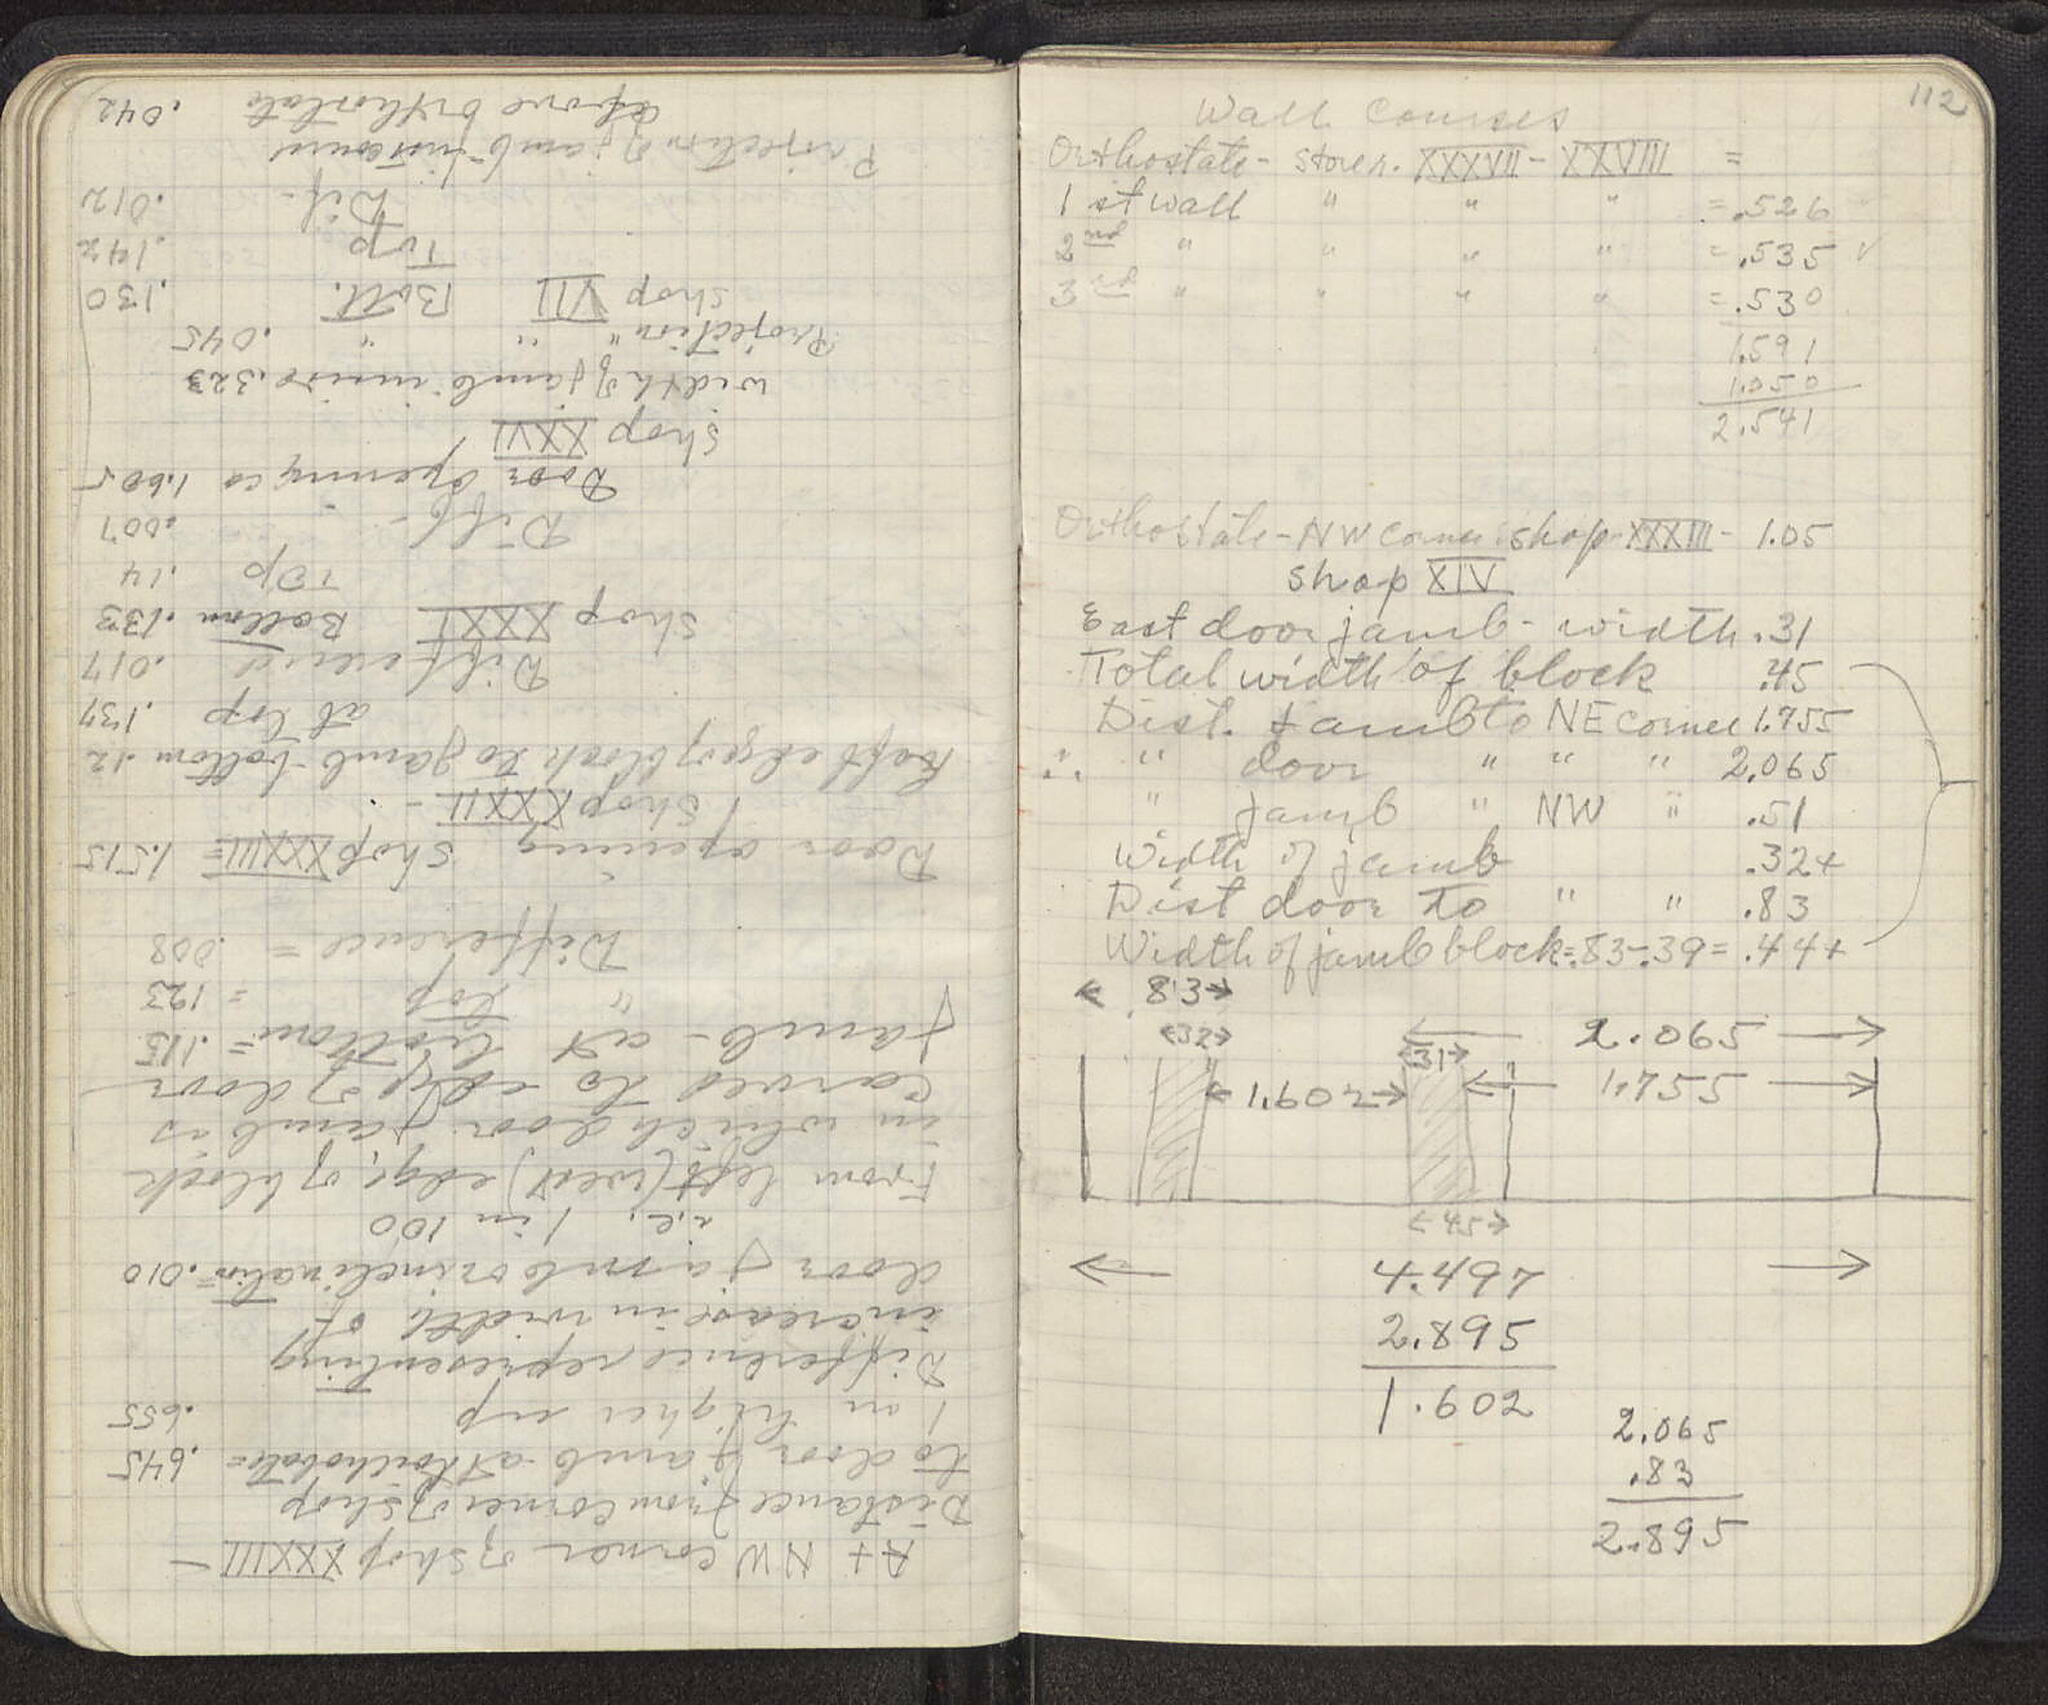 At NW corner of shop XXXIII –
Distance from corner of shop
to door jamb at toichobate = .645
1 m higher up .655
Difference representing
increase in width of
door jamb or inclination = .010
i.e. 1 in 100
From left (west) edge of block
in which door jamb is
carved to edge of door
jamb - at bottom = .115
" " top = .123
Difference = .008
Door opening shop XXXIII = 1.515
Shop XXXII -
Left edge of block to jamb bottom .12
at top .137
Difference .017
Shop XXXI Bottom .133
Top .14
Diff - .007
Door opening is 1.605
Shop XXVI
width of jamb inside .323
Projection " " " .045
shop VII Bott. .130
Top .142
Dif - .012
Projection of jamb
above orthostate .042
112
Wall Courses
Orthostate - stores. XXXVII - XXVIII =
1st wall " " " = .526
2nd " " " " = .535 v
3rd " " " " = .530
1.591
1.050
2.541
Orthostate - NW corner shop XXXIII - 1.05
shop XIV
East door jamb - width .31
Total width of block .45
Dist. jamb to NE corner 1.755
∴ " door " " " 2.065
" jamb " NW " .51
Width of jamb .32+
Dist door to " " .83
Width of jamb block = .83-.39 = .44+
.83
.32
2.065
.31
1.602
1.755
.45
4.497
2.895
1.602
2.065
.83
2.895